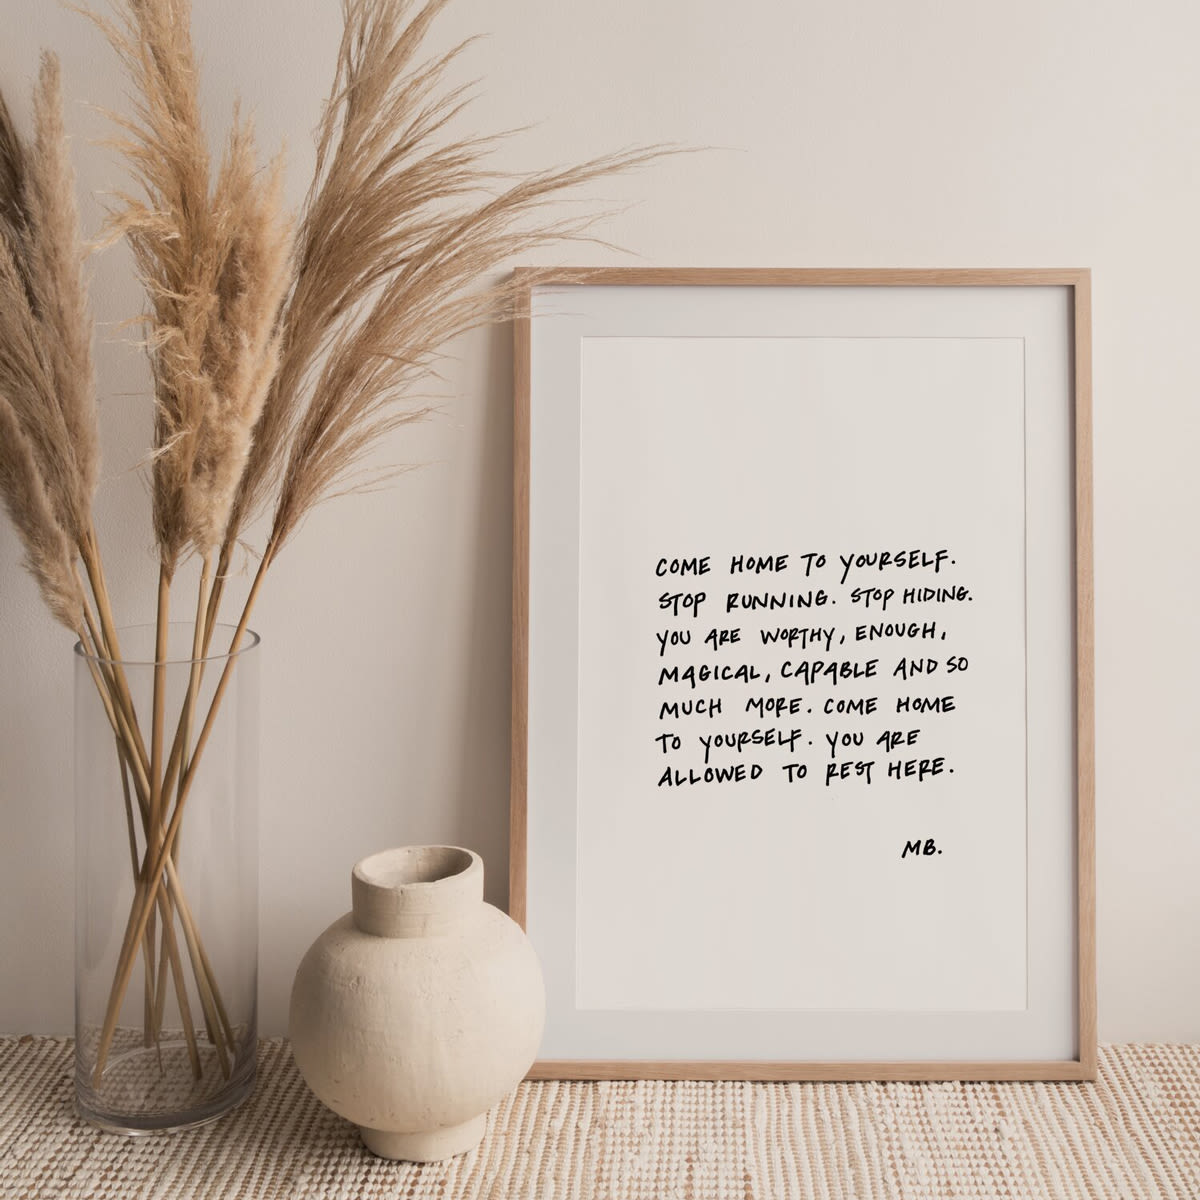 COME HOME TO YOURSELF.
STOP RUNNING. STOP HIDING.
YOU ARE WORTHY, ENOUGH,
MAGICAL, CAPABLE AND SO
MUCH MORE. COME HOME
TO YOURSELF. YOU ARE
ALLOWED TO REST HERE.
MB.